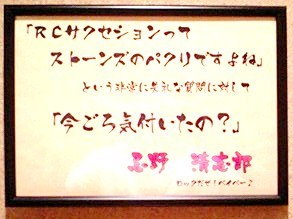 「RCサクセションって
ストーンズのパクリですよね」
という非常に失礼な質問に対して
「今ごろ気付いたの?」
忌野 清志郎
ロックだぜ!ベイベー♪